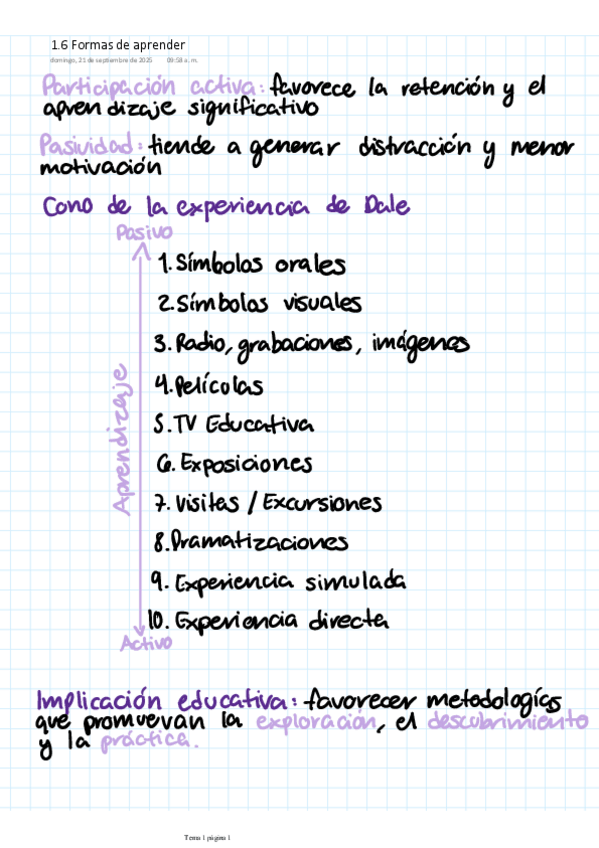 1.6 Formas de aprender
domingo, 21 de septiembre de 2025 09:58 a. m.
Participación activa: favorece la retención y el
aprendizaje significativo
Pasividad: tiende a generar distracción y menor
motivación
Cono de la experiencia de Dale
Pasivo
Aprendizaje
1. Símbolos orales
2. Símbolos visuales
3. Radio, grabaciones, imágenes
4. Películas
5. TV Educativa
6. Exposiciones
7. Visitas / Excursiones
8. Dramatizaciones
9. Experiencia simulada
10. Experiencia directa
Activo
Implicación educativa: favorecer metodologías
que promuevan la exploración, el descubrimiento
y la práctica.
Tema 1 página 1